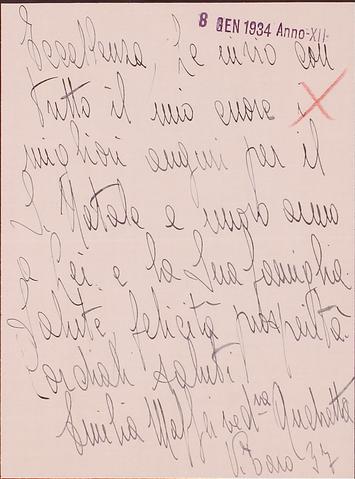 8 GEN 1934 Anno-XII-
Eccellenza, Le invio con
tutto il mio cuore i
migliori auguri per il
S. Natale e nuovo anno
a Lei e la Sua famiglia.
Salute felicità prosperità.
Cordiali saluti
Emilia Maffei ved.va